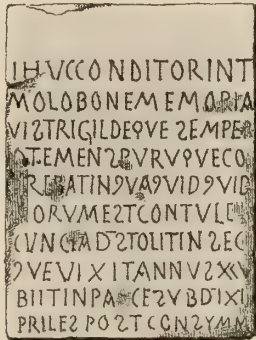 IHVCCONDITORINT
MOLOBONEMEMORIA
VISTRIGILDEQVESEMPER
OTEMENSPVRVQVECO
REBATINQVAQVIDQVID
ORVMESTCONTVLE
CVNCTADSTOLITINSEC
QVEVIXITANNVSXXV
BIITINPACESVBDIXI
PRILESPOSTCCNSVMM